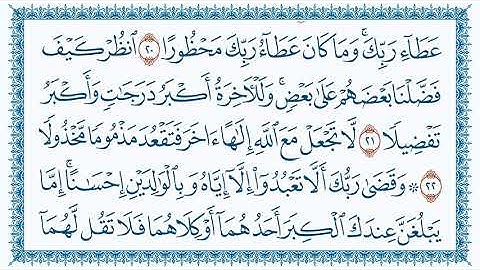 عَطَآءِ رَبِّكَۚ وَمَا كَانَ عَطَآءُ رَبِّكَ مَحۡظُورًا ٢٠ ٱنظُرۡ كَيۡفَ
فَضَّلۡنَا بَعۡضَهُمۡ عَلَىٰ بَعۡضٖۚ وَلَلۡأٓخِرَةُ أَكۡبَرُ دَرَجَٰتٖ وَأَكۡبَرُ
تَفۡضِيلٗا ٢١ لَّا تَجۡعَلۡ مَعَ ٱللَّهِ إِلَٰهًا ءَاخَرَ فَتَقۡعُدَ مَذۡمُومٗا مَّخۡذُولٗا
٢٢ ۞ وَقَضَىٰ رَبُّكَ أَلَّا تَعۡبُدُوٓاْ إِلَّآ إِيَّاهُ وَبِٱلۡوَٰلِدَيۡنِ إِحۡسَٰنًاۚ إِمَّا
يَبۡلُغَنَّ عِندَكَ ٱلۡكِبَرَ أَحَدُهُمَآ أَوۡ كِلَاهُمَا فَلَا تَقُل لَّهُمَآ